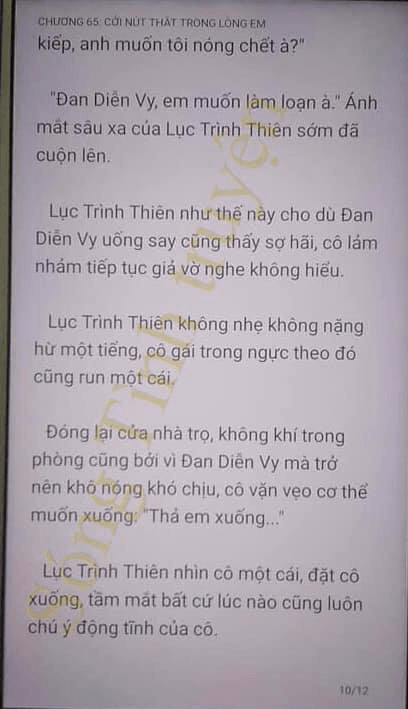 CHƯƠNG 65: CỞI NÚT THẮT TRONG LÒNG EM
kiếp, anh muốn tôi nóng chết à?"
"Đan Diễn Vy, em muốn làm loạn à." Ánh
mắt sâu xa của Lục Trình Thiên sớm đã
cuộn lên.
Lục Trình Thiên như thế này cho dù Đan
Diễn Vy uống say cũng thấy sợ hãi, cô lảm
nhảm tiếp tục giả vờ nghe không hiểu.
Lục Trình Thiên không nhẹ không nặng
hừ một tiếng, cô gái trong ngực theo đó
cũng run một cái.
Đóng lại cửa nhà trọ, không khí trong
phòng cũng bởi vì Đan Diễn Vy mà trở
nên khô nóng khó chịu, cô vặn vẹo cơ thể
muốn xuống: "Thả em xuống..."
Lục Trình Thiên nhìn cô một cái, đặt cô
xuống, tầm mắt bất cứ lúc nào cũng luôn
chú ý động tĩnh của cô.
10/12
Sóng Tình truyện